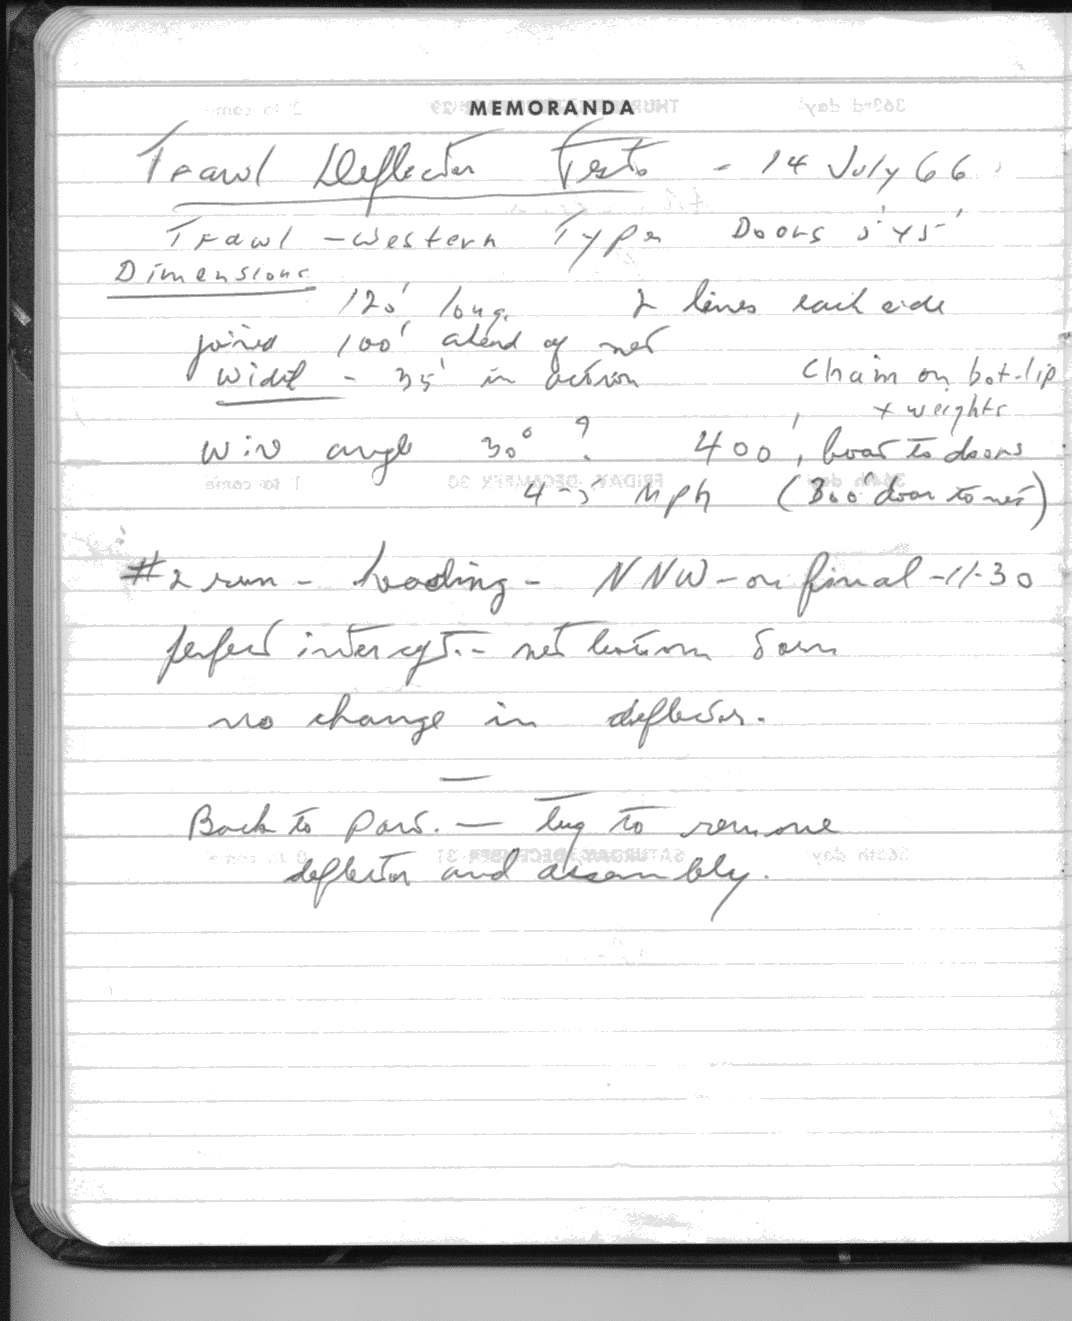 MEMORANDA
Trawl Deflector Tests - 14 July 66
Trawl - Western Type Doors 5' x 5'
Dimensions
120' long. 2 lines each side
joined 100' ahead of net
Width - 35' in action Chain on bot. lip
+ weights
Wire angle 30° ? 400', boat to doors
4-5 mph (300' door to net)
#2 run - heading - NNW - on final - 11-30
perfect intercept. - net bottom down
no change in deflector.
—
Back to port. — tug to remove
deflector and assembly.